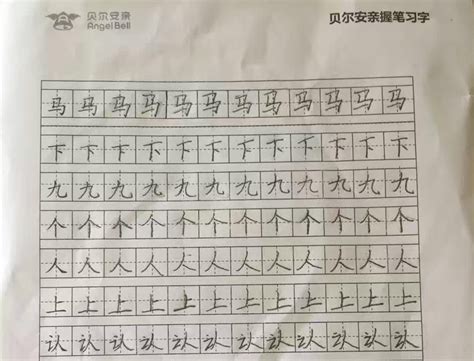 贝尔安亲
Angel Bell
贝尔安亲握笔习字
马马马马马马马马马马马马
下下下下下下下下下下下下
九九九九九九九九九九九九
个个个个个个个个个个个个
人人人人人人人人人人人人
上上上上上上上上上上上上
认认认认认认认认认认认认